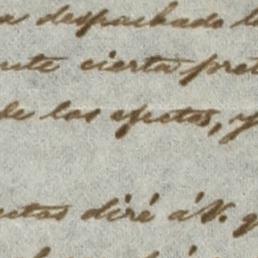 a despachado l
nte cierta pret
de los efectos, y
ectos diré á V. q